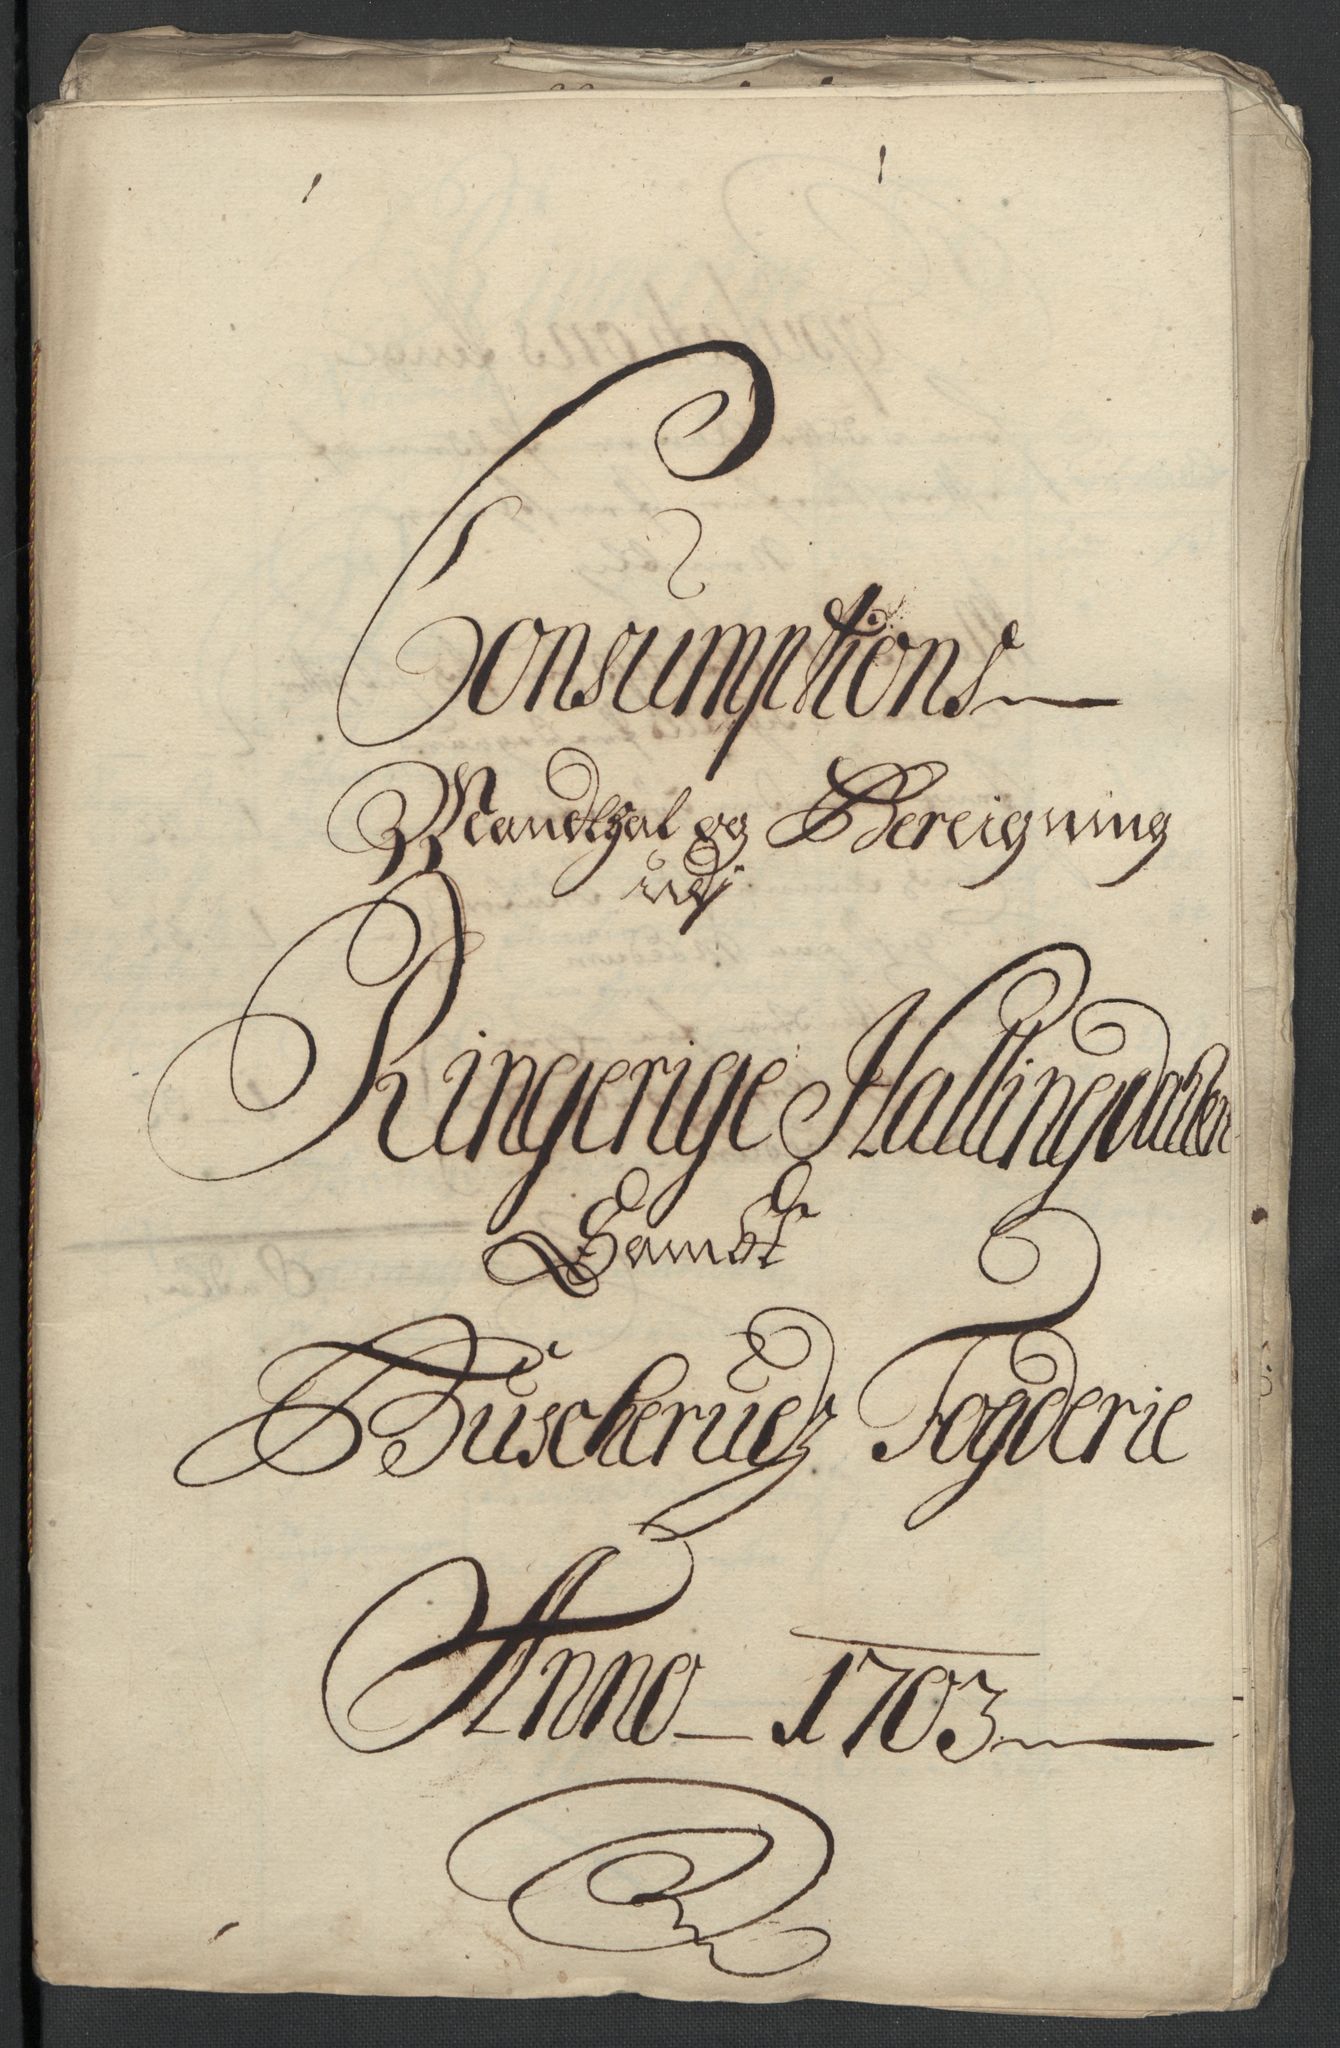 Consumptions
Mandthal og Bereigning
udj
Ringerige Hallingdahlen
Sambt
Buscheruds Fogderie
Anno 1703